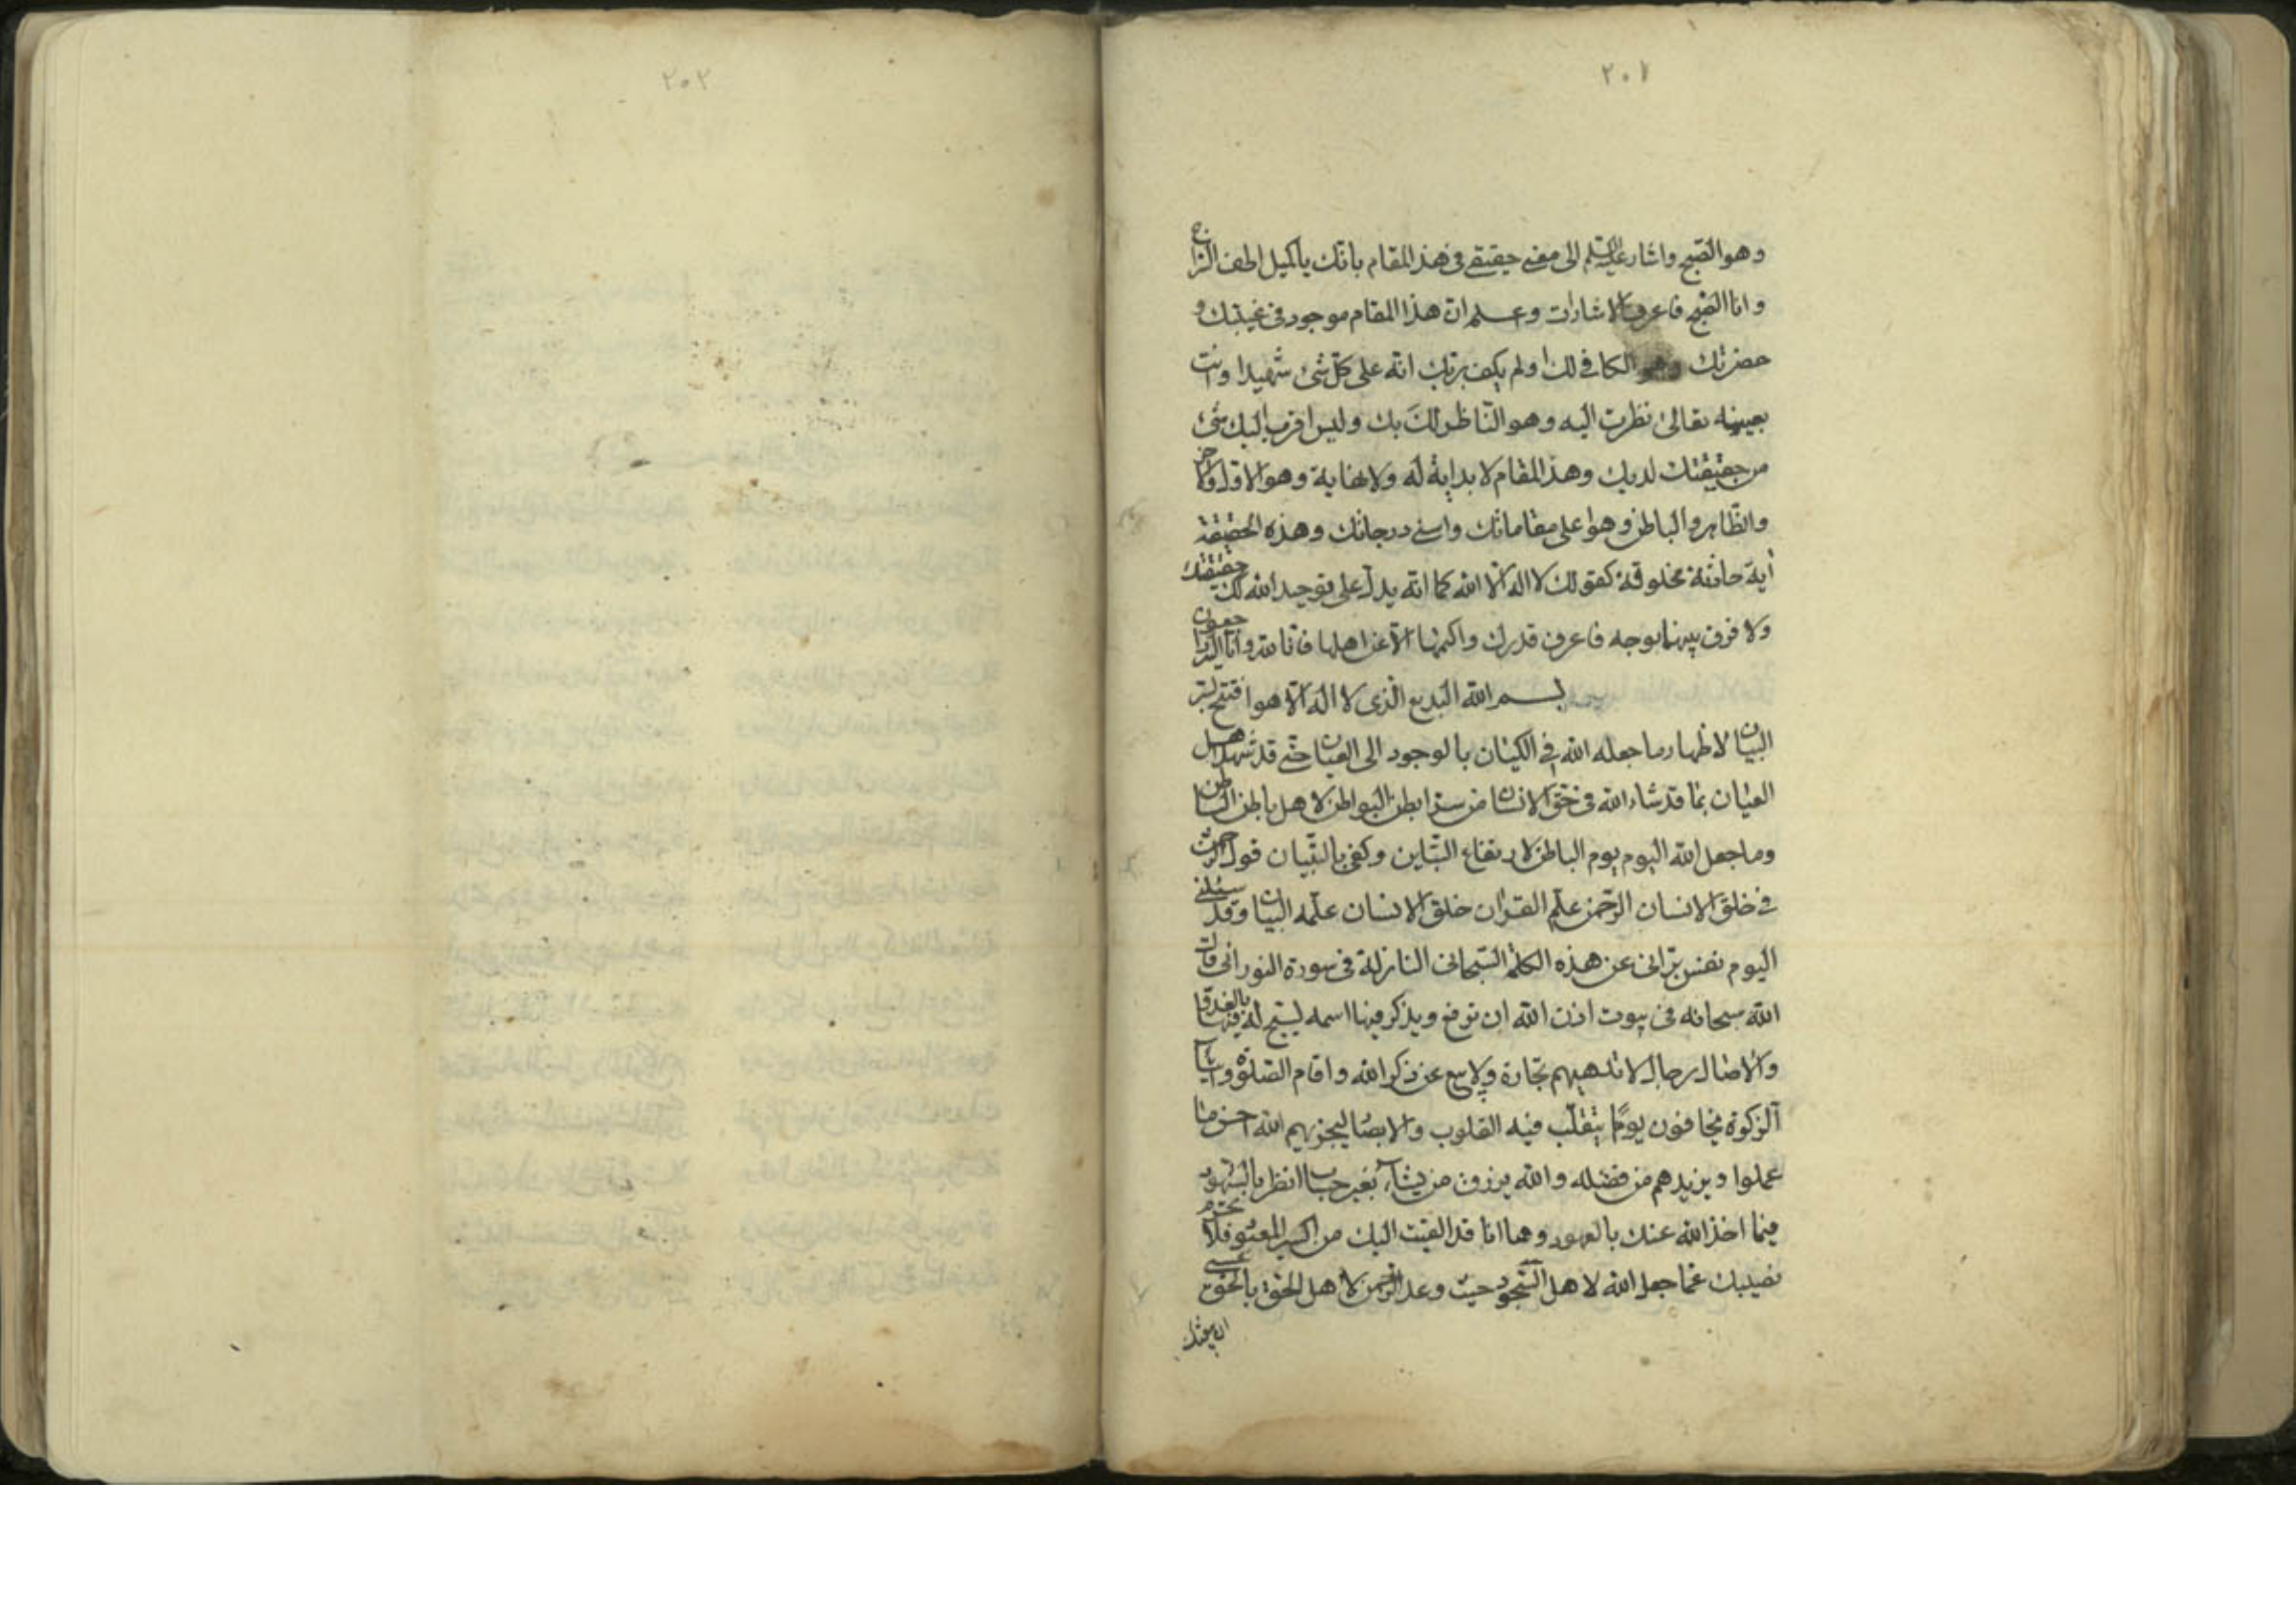 ٢٠١
وهو الصبح واشار عليه السلم الى معنى حقيقتى فى هذا المقام بانك ياكميل اطف السراج
وانا الصبح فاعرف الاشارات وعلم ان هذا المقام موجود فى غيبتك و
حضرتك وهو الكافى لك اولم يكف بربك انه على كل شئ شهيدا وانت
بعينه تعالى نظرت اليه وهو الناظر لك بك وليس اقرب اليك شئ
من حقيقتك لديك وهذا المقام لا بداية له ولا نهاية وهو الاول والاخر
والظاهر والباطن وهو اعلى مقاماتك واسنى درجاتك وهذه الحقيقة
آية حادثة مخلوقة كقولك لا اله الا الله كما انه يدل على توحيد الله لك حقيقتك
ولا فرق بينهما بوجه فاعرف قدرك واكتمها الا عن اهلها فانا لله وانا اليه راجعون
بسم الله البديع الذى لا اله الا هو افتتح لسر
البيان لاظهار ما جعله الله فى الكيان بالوجود الى العيان حتى قد شهد اهل
العيان بما قد شاء الله فى خلق الانسان من سر ابطن البواطن لاهل باطن الباطن
وما جعل الله اليوم يوم الباطن لارتفاع التباين وكفى بالتبيان قول الرحمن
فى خلق الانسان الرحمن علم القران خلق الانسان علمه البيان وقد سئلنى
اليوم نفس ترانى عن هذه الكلمة السبحانى النازلة فى سورة النورانى قال
الله سبحانه فى بيوت اذن الله ان ترفع ويذكر فيها اسمه ليسبح له فيها بالغدو
والاصال رجال لا تلهيهم تجارة ولا بيع عن ذكر الله واقام الصلوة وايتاء
الزكوة يخافون يوما يتقلب فيه القلوب والابصار ليجزيهم الله احسن ما
عملوا ويزيدهم من فضله والله يرزق من يشاء بغير حساب انظر بالشهود
فيما اخذ الله عنك بالعهود وها انا قد القيت اليك من اكسير المعبود فلا تحرم
نصيبك عما جعل الله لاهل السجود حيث وعد الرحمن لاهل الحق بالحق عسى
ان يبعثك
٢٠٢